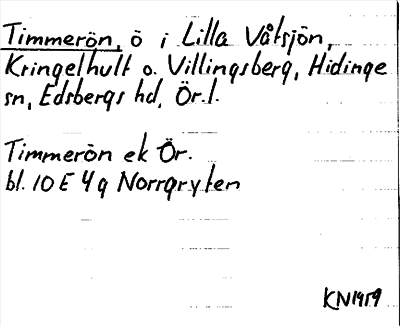 Timmerön, ö i Lilla Våtsjön,
Kringelhult o. Villingsberg, Hidinge
sn, Edsbergs hd, Ör. l.
Timmerön ek Ör.
bl. 10 E 4 g Norrgryten
KN 1959